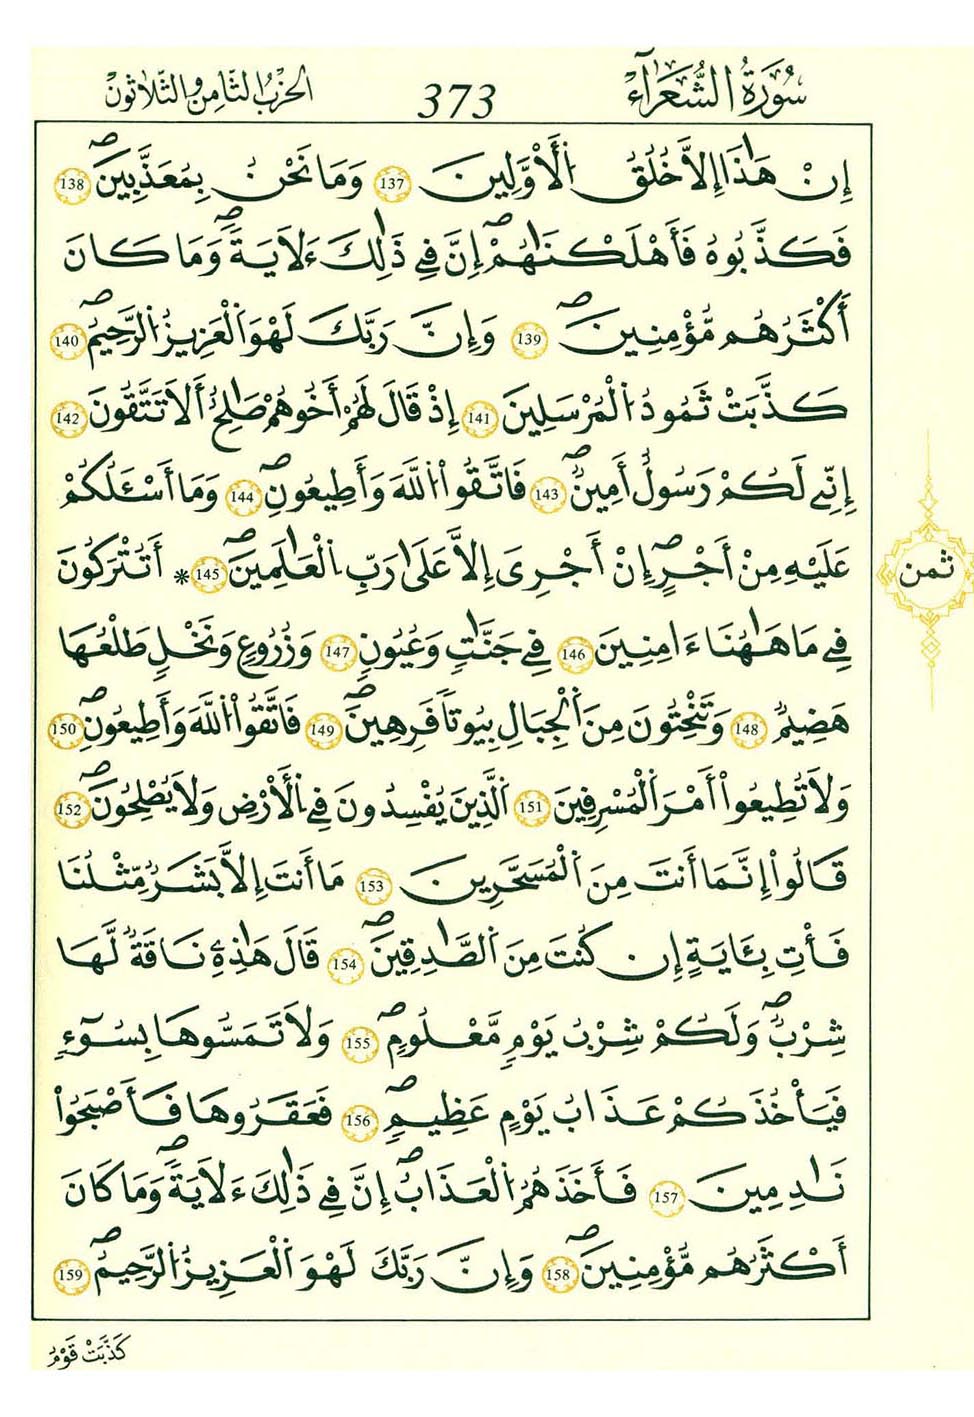 سُورَةُ الشُّعَرَآءِ 373 الحِزْبُ الثَّامِنُ وَالثَّلَاثُونَ
إِنْ هَٰذَا إِلَّا خُلُقُ اُ۬لْأَوَّلِينَ 137 وَمَا نَحْنُ بِمُعَذَّبِينَۖ 138
فَكَذَّبُوهُ فَأَهْلَكْنَٰهُمْۖ إِنَّ فِے ذَٰلِكَ ءَلَايَةٗۖ وَمَا كَانَ
أَكْثَرُهُم مُّؤْمِنِينَۖ 139 وَإِنَّ رَبَّكَ لَهْوَ اَ۬لْعَزِيزُ اُ۬لرَّحِيمُۖ 140
كَذَّبَتْ ثَمُودُ اُ۬لْمُرْسَلِينَ 141 إِذْ قَالَ لَهُمْ أَخُوهُمْ صَٰلِحٌ أَلَا تَتَّقُونَ 142
إِنِّے لَكُمْ رَسُولٌ أَمِينٞۖ 143 فَاتَّقُوا۟ اُ۬للَّهَ وَأَطِيعُونِۖ 144 وَمَا أَسْـَٔلُكُمْ
عَلَيْهِ مِنْ أَجْرٍۖ إِنْ أَجْرِىَ إِلَّا عَلَىٰ رَبِّ اِ۬لْعَٰلَمِينَۖ 145 * أَتُتْرَكُونَ
فِے مَا هَٰهُنَا ءَامِنِينَ 146 فِے جَنَّٰتٖ وَعُيُونٖ 147 وَزُرُوعٖ وَنَخْلٖ طَلْعُهَا
هَضِيمٞ 148 وَتَنْحِتُونَ مِنَ اَ۬لْجِبَالِ بِيُوتاٗ فَرِهِينَۖ 149 فَاتَّقُوا۟ اُ۬للَّهَ وَأَطِيعُونِۖ 150
وَلَا تُطِيعُوا۟ أَمْرَ اَ۬لْمُسْرِفِينَ 151 اَ۬لَّذِينَ يُفْسِدُونَ فِے اِ۬لْأَرْضِ وَلَا يُصْلِحُونَۖ 152
قَالُوا۟ إِنَّمَا أَنتَ مِنَ اَ۬لْمُسَحَّرِينَ 153 مَا أَنتَ إِلَّا بَشَرٞ مِّثْلُنَا
فَأْتِ بِـَٔايَةٍ إِن كُنتَ مِنَ اَ۬لصَّٰدِقِينَۖ 154 قَالَ هَٰذِهِۦ نَاقَةٞ لَّهَا
شِرْبٞۖ وَلَكُمْ شِرْبُ يَوْمٖ مَّعْلُومٖۖ 155 وَلَا تَمَسُّوهَا بِسُوٓءٖ
فَيَأْخُذَكُمْ عَذَابُ يَوْمٍ عَظِيمٖۖ 156 فَعَقَرُوهَا فَأَصْبَحُوا۟
نَٰدِمِينَ 157 فَأَخَذَهُمُ اُ۬لْعَذَابُۖ إِنَّ فِے ذَٰلِكَ ءَلَايَةٗۖ وَمَا كَانَ
أَكْثَرُهُم مُّؤْمِنِينَۖ 158 وَإِنَّ رَبَّكَ لَهْوَ اَ۬لْعَزِيزُ اُ۬لرَّحِيمُۖ 159
ثمن
كَذَّبَتْ قَوْمُ